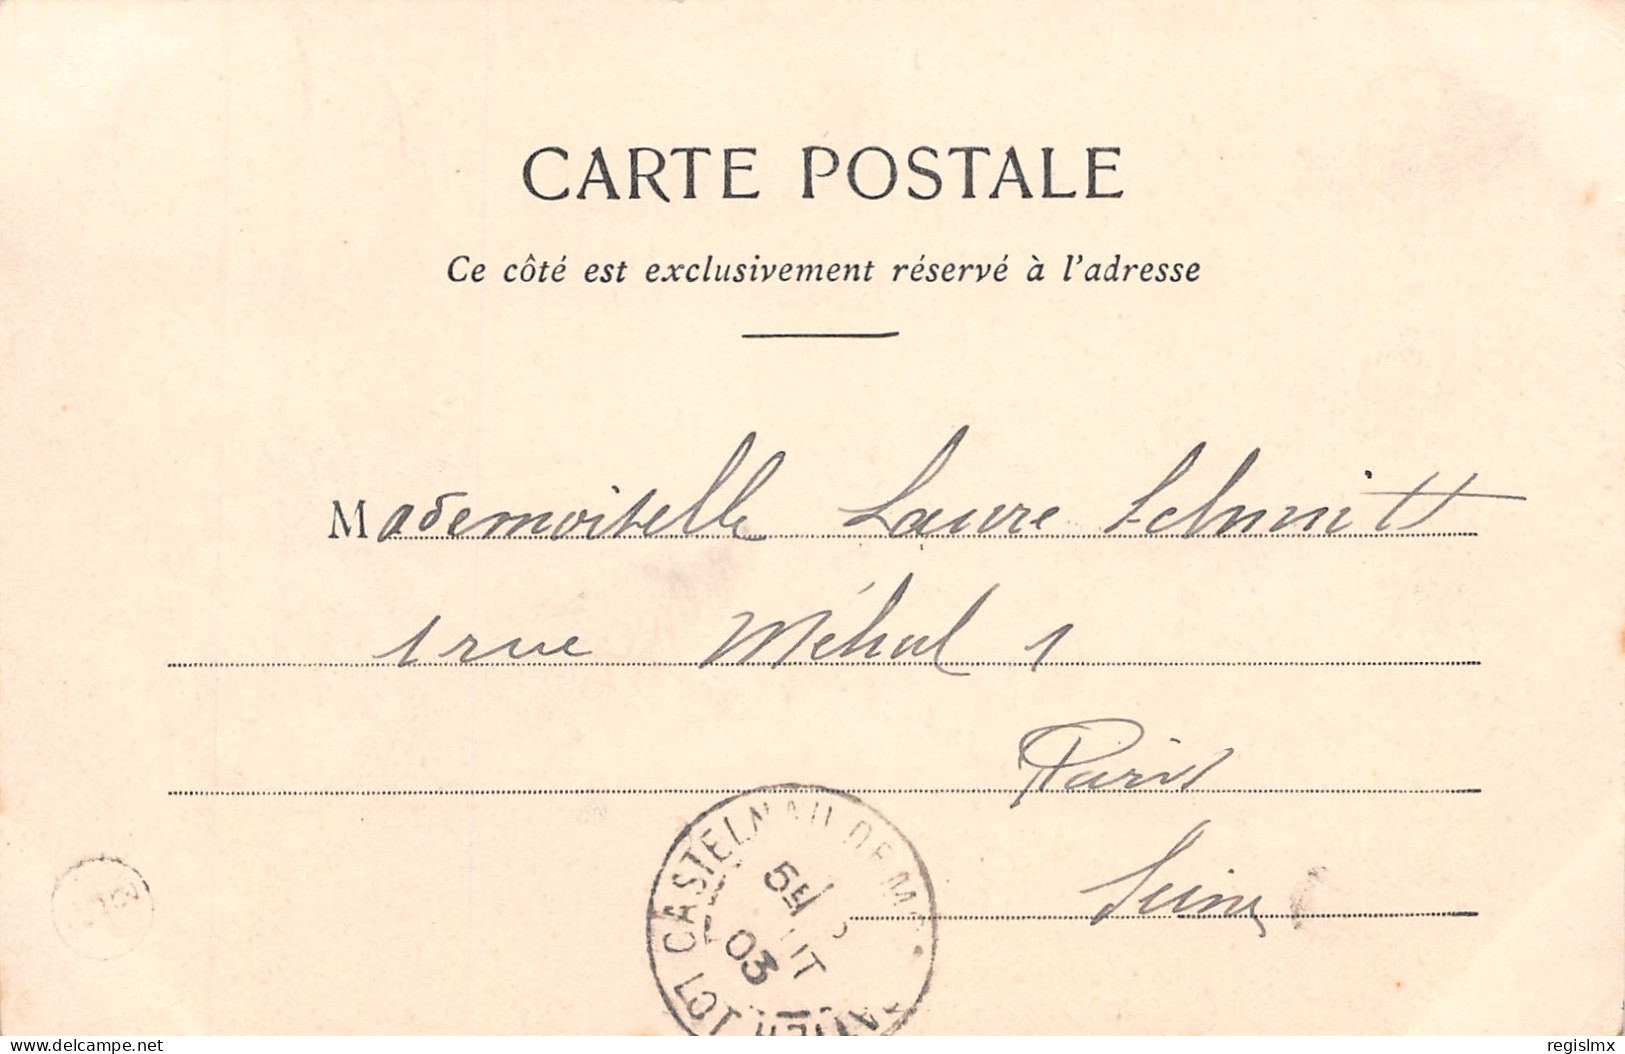 CARTE POSTALE
Ce côté est exclusivement réservé à l'adresse
Mademoiselle Laure Schmitt
1 rue Méhul 1
Paris
Seine
CASTELNAU DE M
5E
03
LOT
www.delcampe.net
regislmx